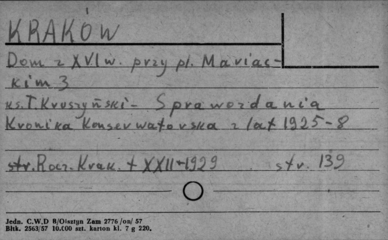 KRAKÓW
Dom z XVI w. przy pl. Mariac-
kim 3
ks. T. Kruszyński - Sprawozdania
Kronika Konserwatorska z lat 1925-8
str. Rocz. Krak. t XXII-1929 str. 139
Jedn. C.W.D 8/Olsztyn Zam 2776 /on/ 57
Bhk. 2563/57 10.000 szt. karton kl. 7 g 220.